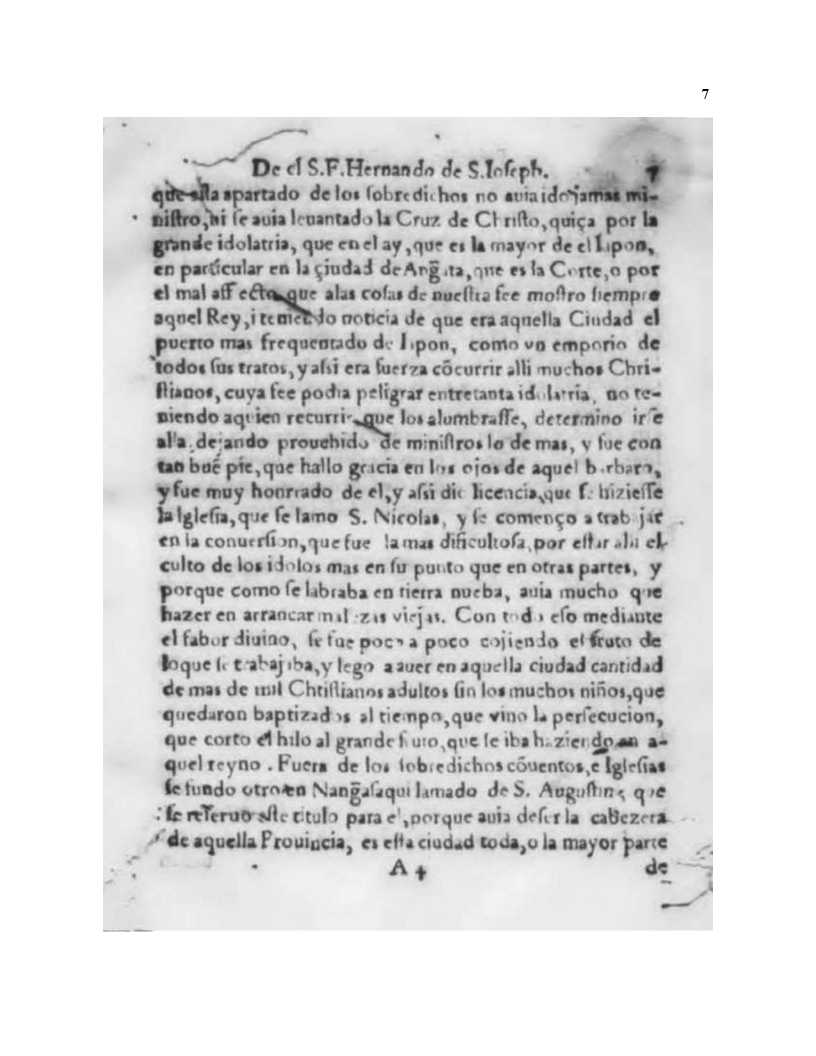 7
De el S.F.Hernando de S.Ioseph. 7
que esta apartado de los sobredichos no auia ido jamas mi-
nistro,ni se auia leuantado la Cruz de Christo,quiça por la
grande idolatria, que en el ay,que es la mayor de el Iapon,
en particular en la çiudad de Ang̃ita,que es la Corte,o por
el mal affecto que alas cosas de nuestra fee mostro siempre
aquel Rey,i teniendo noticia de que era aquella Ciudad el
puerto mas frequentado de Iapon, como vn emporio de
todos sus tratos,y assi era fuerza cõcurrir alli muchos Chri-
stianos, cuya fee podia peligrar entretanta idolatria, no te-
niendo aquien recurrir que los alumbrasse, determino irse
alla,dejando prouehido de ministros lo de mas, y fue con
tan buẽ pie,que hallo gracia en los ojos de aquel barbaro,
y fue muy honrrado de el,y assi dio licencia,que se hiziesse
la Iglesia,que se lamo S. Nicolas, y se començo a trabajar
en la conuersion,que fue la mas dificultosa,por estar alli el
culto de los idolos mas en su punto que en otras partes, y
porque como se labraba en tierra nueba, auia mucho que
hazer en arrancar malezas viejas. Con todo eso mediante
el fabor diuino, se fue poco a poco cojiendo el fruto de
loque se trabajaba,y lego aauer en aquella ciudad cantidad
de mas de mil Chtistianos adultos sin los muchos niños,que
quedaron baptizados al tiempo,que vino la persecucion,
que corto el hilo al grande fruto,que se iba haziendo en a-
quel reyno . Fuera de los sobredichos cõuentos,e Iglesias
se fundo otro en Nang̃asaqui lamado de S. Augustin; que
se reseruo este titulo para el,porque auia deser la cabezera
de aquella Prouincia, es esta ciudad toda,o la mayor parte
A 4 de